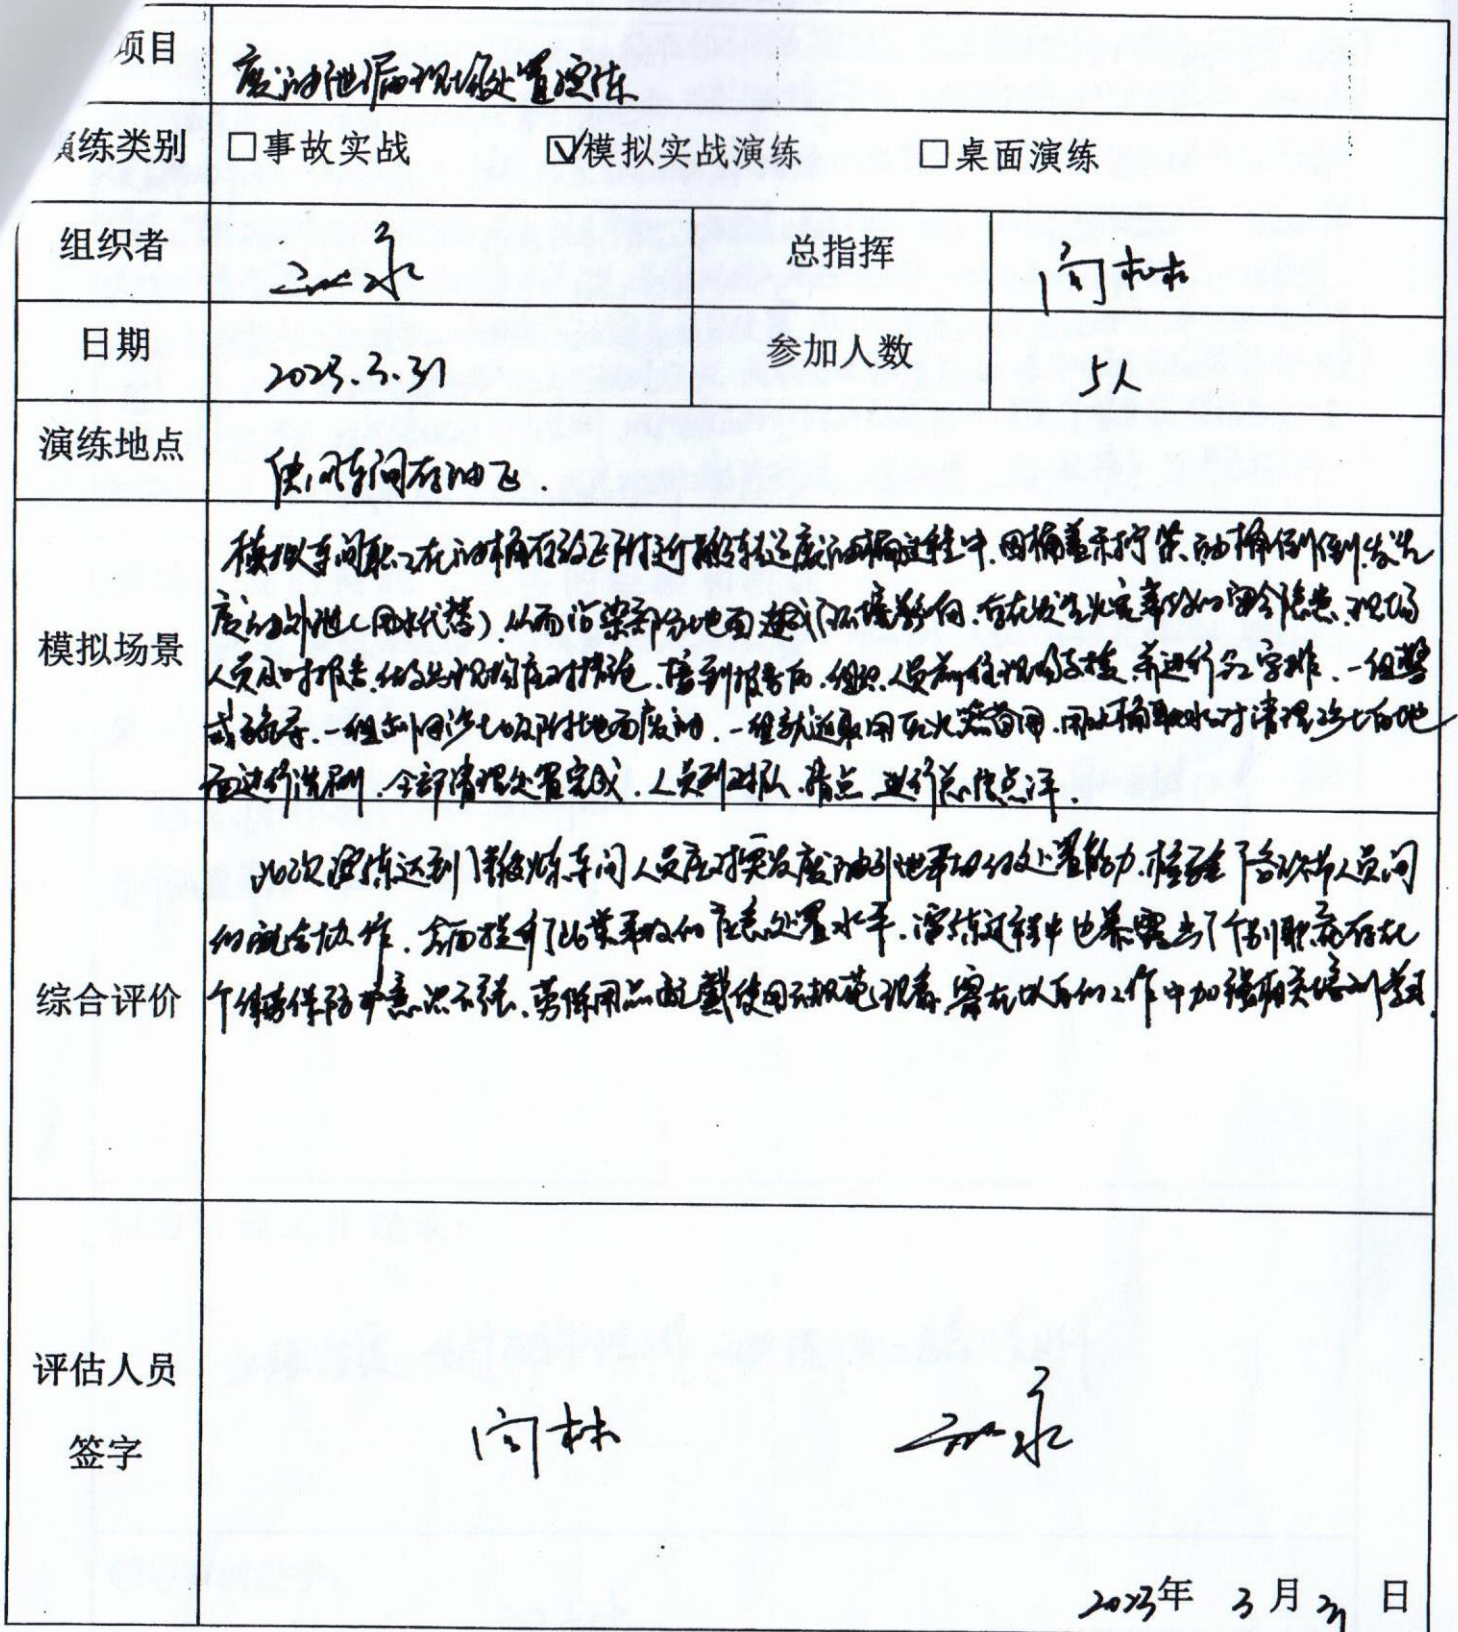 项目 废油泄漏现场处置演练
演练类别 □事故实战 ☑模拟实战演练 □桌面演练
组织者 总指挥 闫林
日期 2023.3.31 参加人数 5人
演练地点 车间存油区.
模拟场景
模拟车间职工在油桶存放区附近搬转运废油桶过程中,因桶盖未拧紧,油桶倾倒,发生
废油外泄(用水代替),从而污染部分地面造成环境影响,存在发生火灾事故的安全隐患,现场
人员及时报告,做出现场应对措施,接到报告后,组织人员前往现场支援,并进行分工安排,一组警
戒疏导,一组利用沙土吸附地面废油,一组就近取用灭火器备用,用水桶取水对清理沙土后地
面进行洗刷,全部清理处置完成,人员列队,清点,进行总结点评.
综合评价
此次演练达到了锻炼车间人员应对突发废油外泄事故的处置能力,检验了各班人员间
的配合协作,全面提升了此类事故的应急处置水平,演练过程中也暴露出了个别职工存在
个体劳保防护意识不强,劳保用品配戴使用不规范现象,需在以后的工作中加强相关培训学习.
评估人员
签字
闫林
2023年 3月31日